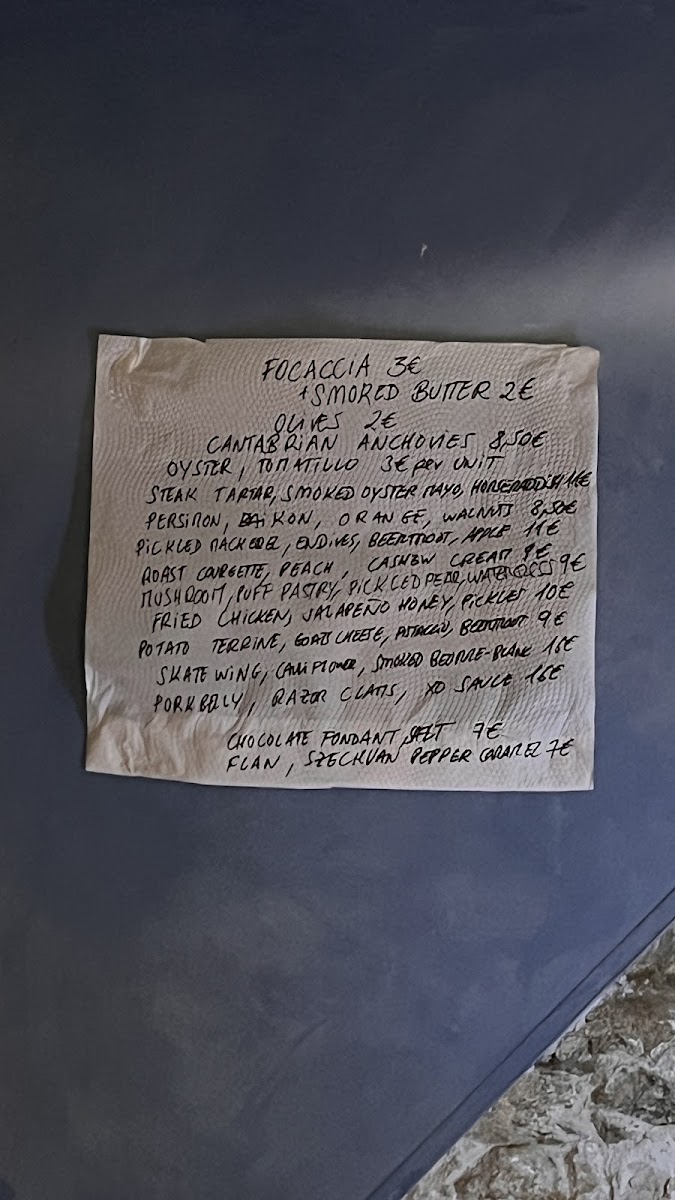 FOCACCIA 3€
+ SMOKED BUTTER 2€
OLIVES 2€
CANTABRIAN ANCHOVIES 8,50€
OYSTER, TOMATILLO 3€ per UNIT
STEAK TARTAR, SMOKED OYSTER MAYO, HORSERADDISH 11€
PERSIMON, DAIKON, ORANGE, WALNUTS 8,50€
PICKLED MACKEREL, ENDIVES, BEETROOT, APPLE 11€
ROAST COURGETTE, PEACH, CASHEW CREAM 9€
MUSHROOM, PUFF PASTRY, PICKLED PEAR, WATERCRESS 9€
FRIED CHICKEN, JALAPEÑO HONEY, PICKLES 10€
POTATO TERRINE, GOATS CHEESE, PISTACCIO, BEETROOT 9€
SKATE WING, CAULIFLOWER, SMOKED BEURRE-BLANC 16€
PORKBELLY, RAZOR CLAMS, XO SAUCE 16€
CHOCOLATE FONDANT, 7€
FLAN, SZECHUAN PEPPER CARAMEL 7€